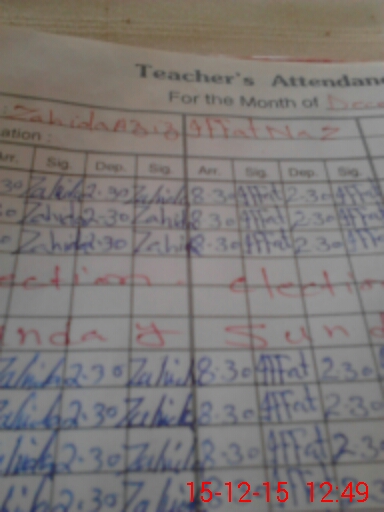 Teacher's Attendan
For the Month of Dece
: Zahida Aziz Iffat Naz
ation :
Arr. Sig. Dep. Sig. Arr. Sig. Dep. Sig.
30 Zahid 2.30 Zahid 8.30 Iffat 2.30 Iffat
30 Zahid 2.30 Zahid 8.30 Iffat 2.30 Iffat
0 Zahid 2.30 Zahid 8.30 Iffat 2.30 Iffat
ection election
nday Sund
Zahid 2.30 Zahid 8.30 Iffat 2.30 Iff
Zahid 2.30 Zahid 8.30 Iffat 2.30
Zahid 2.30 Zahid 8.30 Iffat 2.3
2.30 Zahid
15-12-15 12:49